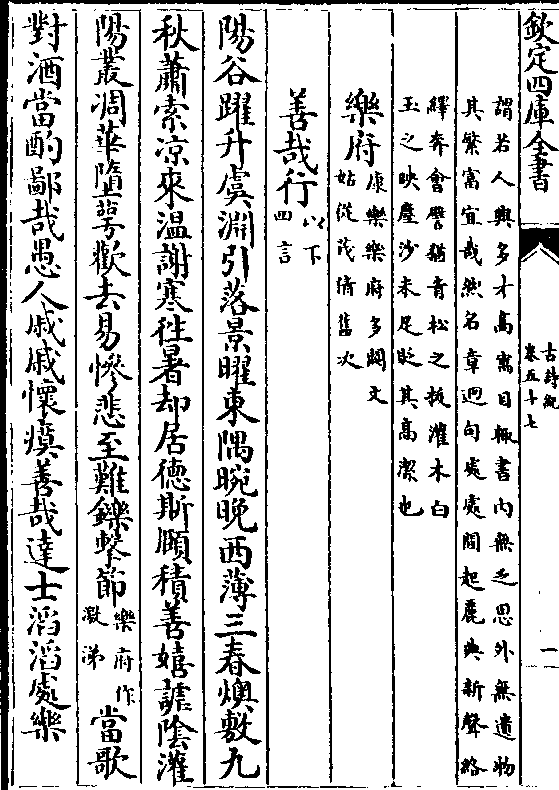 欽定四庫全書
古詩紀
卷五十七
一
謂若人興多才高寓目輒書内無乏思外無遺物
其繁富宜哉然名章迥句處處間起麗典新聲絡
繹奔會譬猶青松之拔灌木白
玉之映塵沙未足貶其高潔也
樂府康樂樂府多闕文
姑從茂倩舊次
善哉行以下
四言
陽谷躍升虞淵引落景曜東隅晼晚西薄三春燠敷九
秋蕭索凉來温謝寒徃暑却居德斯頤積善嬉謔陰灌
陽叢凋華墮萼歡去易慘悲至難鑠擊節樂府作
激涕當歌
對酒當酌鄙哉愚人戚戚懷瘼善哉達士滔滔處樂